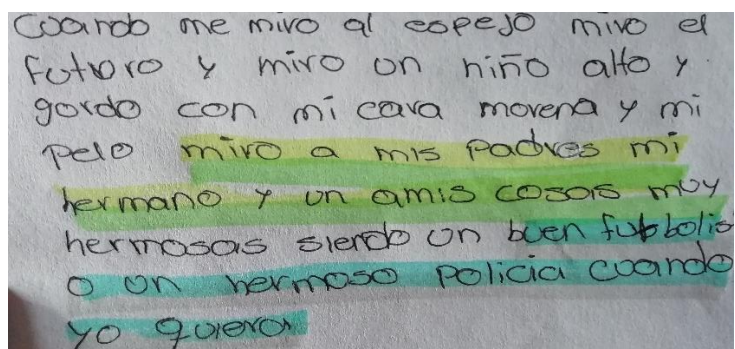 Cuando me miro al espejo miro el
futuro y miro un niño alto y
gordo con mi cara morena y mi
pelo miro a mis padres mi
hermano y un amis cosas muy
hermosas siendo un buen futbolis
o un hermoso policia cuando
yo quiera